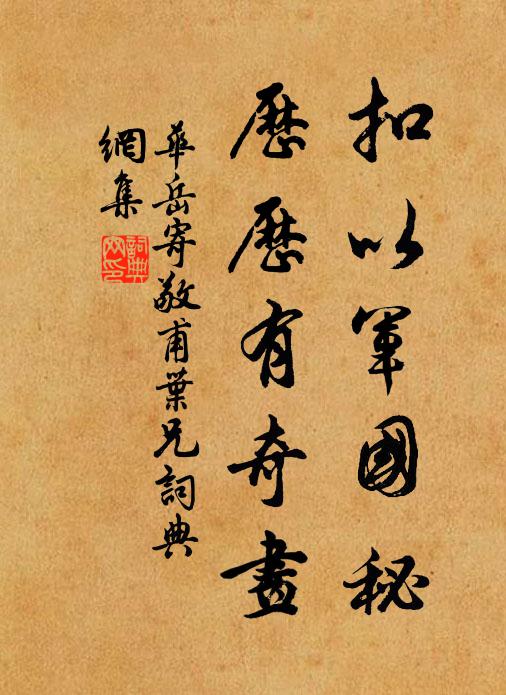 扣以軍國秘
歷歷有奇畫
華岳寄敬甫葉兄詞典
網集
詞典
网印